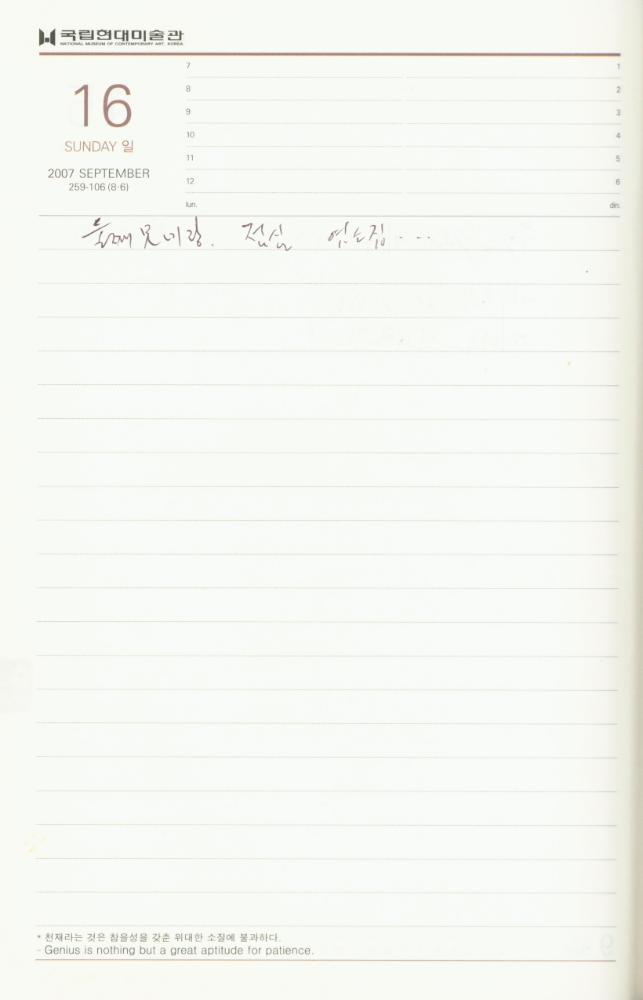 국립현대미술관
NATIONAL MUSEUM OF CONTEMPORARY ART, KOREA
16
SUNDAY 일
2007 SEPTEMBER
259-106 (8·6)
7
8
9
10
11
12
lun.
1
2
3
4
5
6
din.
둘째 못미랑. 점심
* 천재라는 것은 참을성을 갖춘 위대한 소질에 불과하다.
- Genius is nothing but a great aptitude for patience.